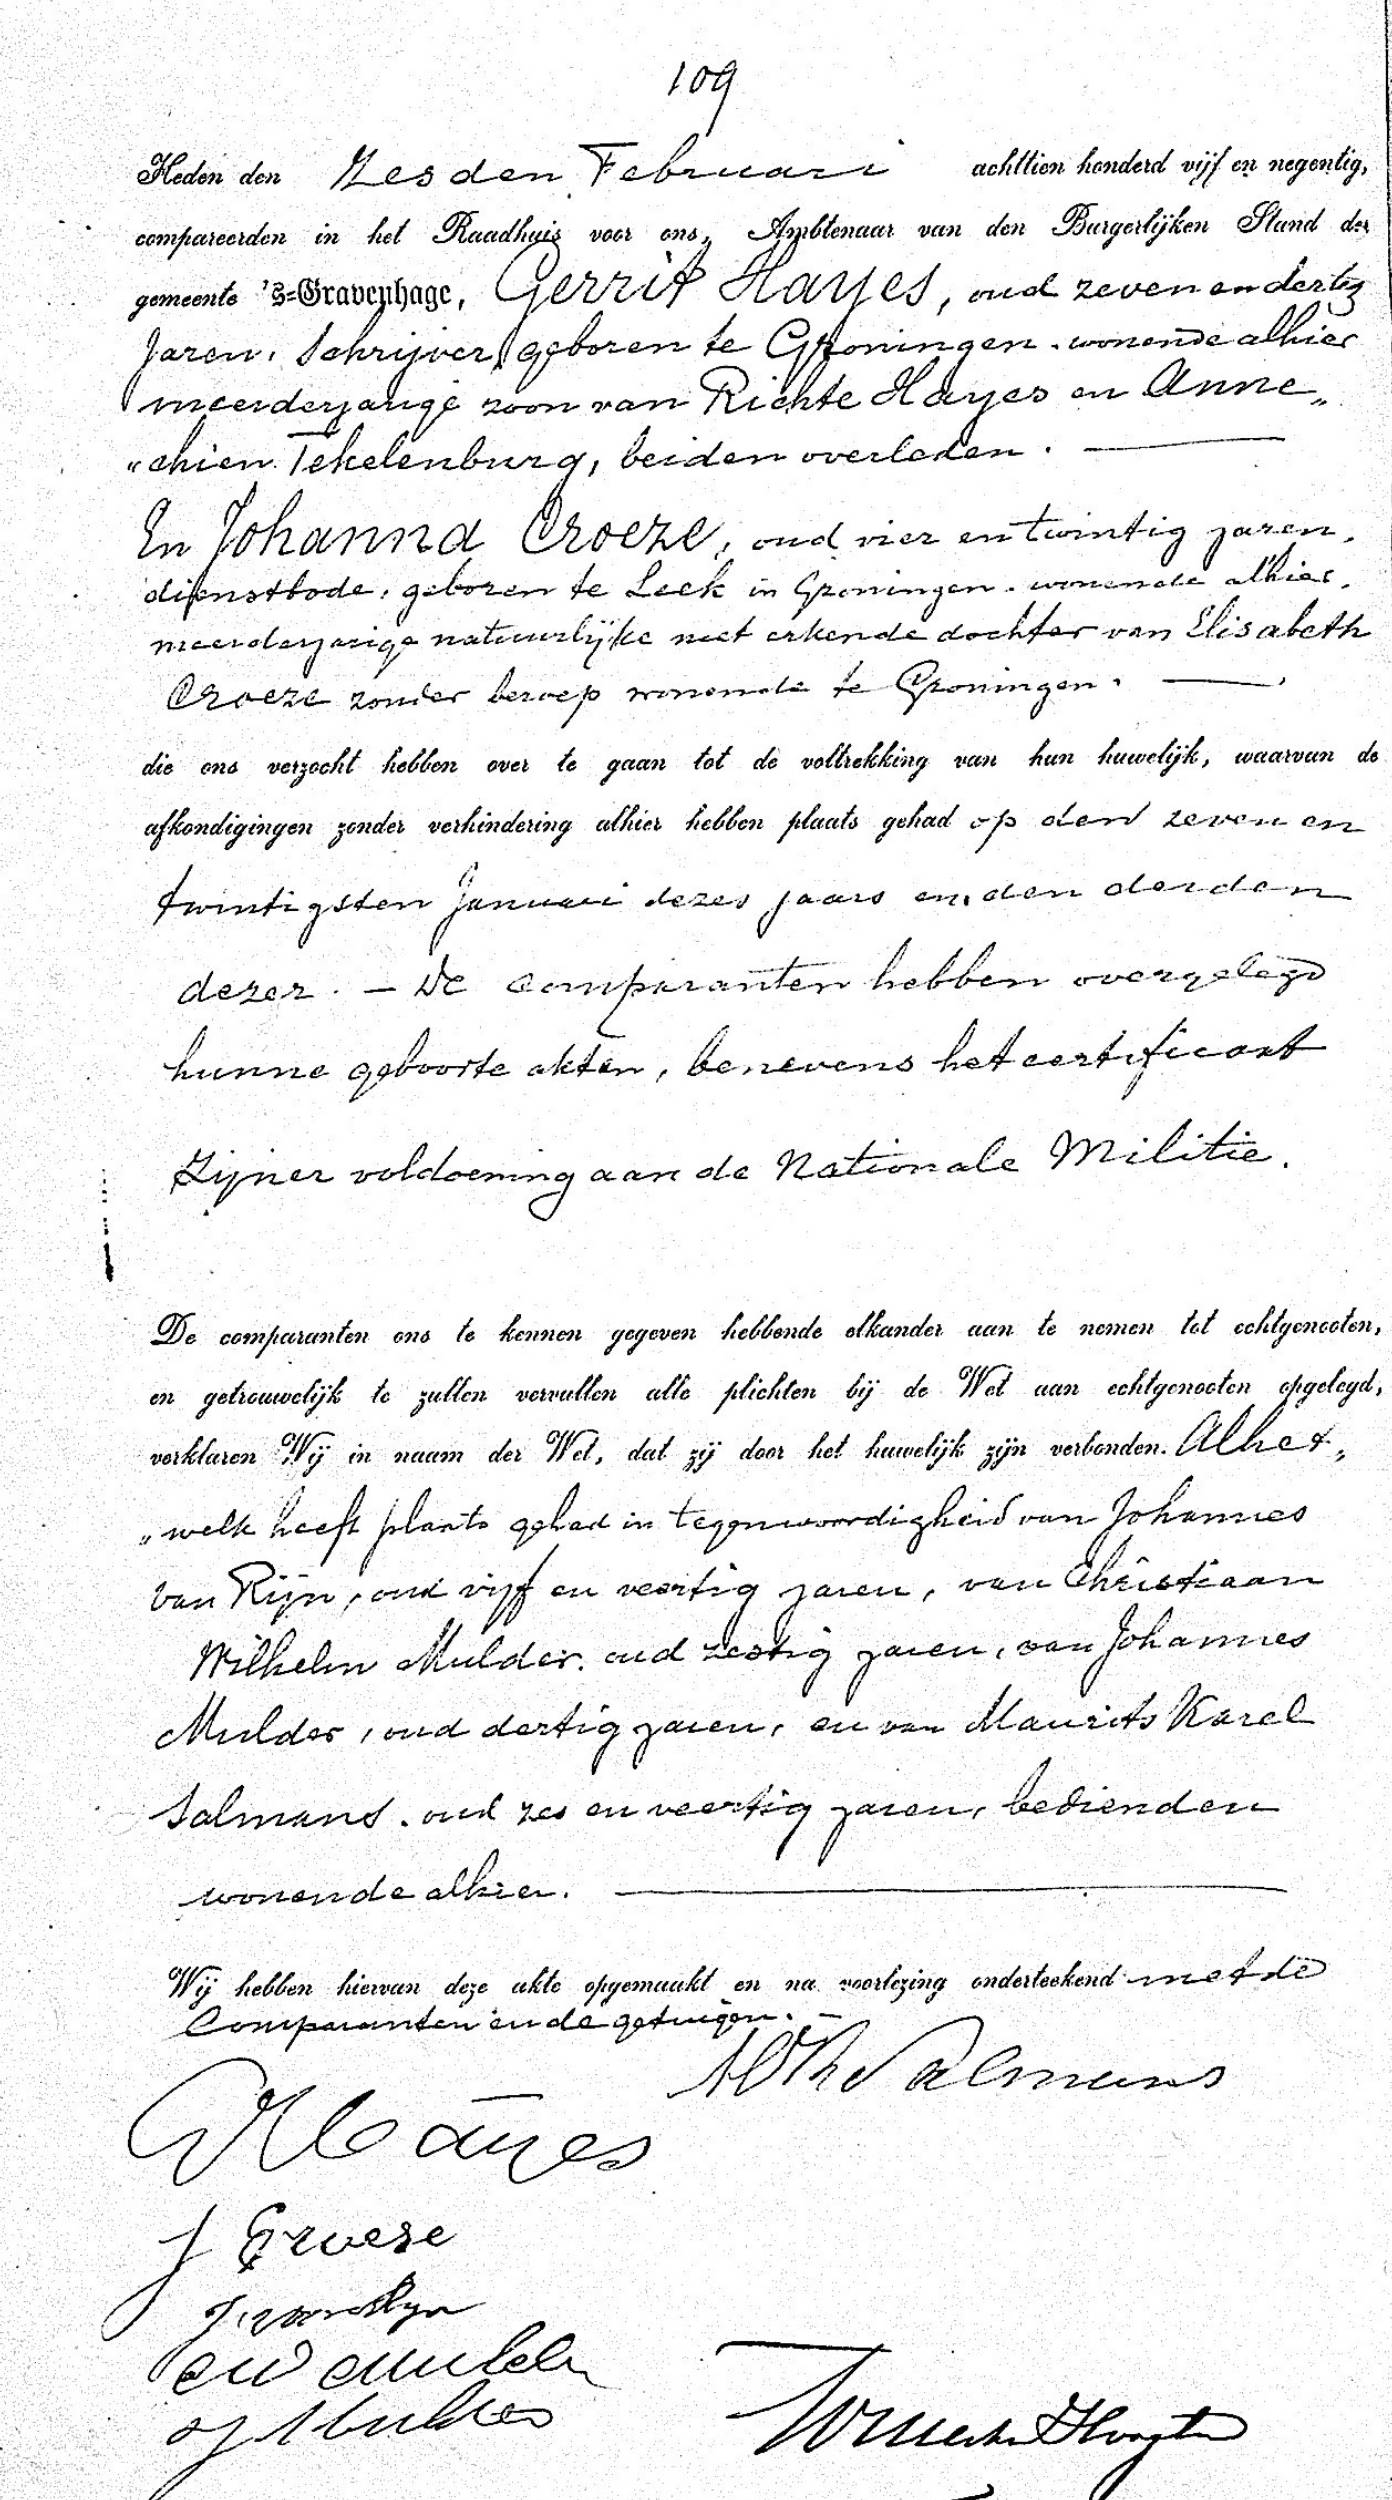 109
Heden den Zesden Februari achttien honderd vijf en negentig,
compareerden in het Raadhuis voor ons, Ambtenaar van den Burgerlijken Stand der
gemeente 's-Gravenhage, Gerrit Hayes, oud zeven en dertig
Jaren, Schrijver, geboren te Groningen. wonende alhier
meerderjarige zoon van Richte Hayes en Anne„
„chien Tekelenburg, beiden overleden. —
En Johanna Croeze, oud vier en twintig jaren,
dienstbode, geboren te Leek in Groningen. wonende alhier,
meerderjarige natuurlijke niet erkende dochter van Elisabeth
Croeze zonder beroep wonende te Groningen. —
die ons verzocht hebben over te gaan tot de voltrekking van hun huwelijk, waarvan de
afkondigingen zonder verhindering alhier hebben plaats gehad op den zeven en
twintigsten Januari dezes jaars en den derden
dezer. — De comparanten hebben overgelegd
hunne geboorte akten, benevens het certificaat
Zijner voldoening aan de Nationale Militie.
De comparanten ons te kennen gegeven hebbende elkander aan te nemen tot echtgenooten,
en getrouwelijk te zullen vervullen alle plichten bij de Wet aan echtgenooten opgelegd,
verklaren Wij in naam der Wet, dat zij door het huwelijk zijn verbonden. Alhet„
„welk heeft plaats gehad in tegenwoordigheid van Johannes
van Rijn, oud vijf en veertig jaren, van Christiaan
Wilhelm Mulder. oud zestig jaren, van Johannes
Mulder, oud dertig jaren, en van Maurits Karel
Salmans. oud zes en veertig jaren, bedienden
wonende alhier. —
Wij hebben hiervan deze akte opgemaakt en na voorlezing onderteekend met de
Comparanten en de getuigen. —
Salmans
GHayes
J Croeze
J. van Rijn
CW Mulder
J Mulder